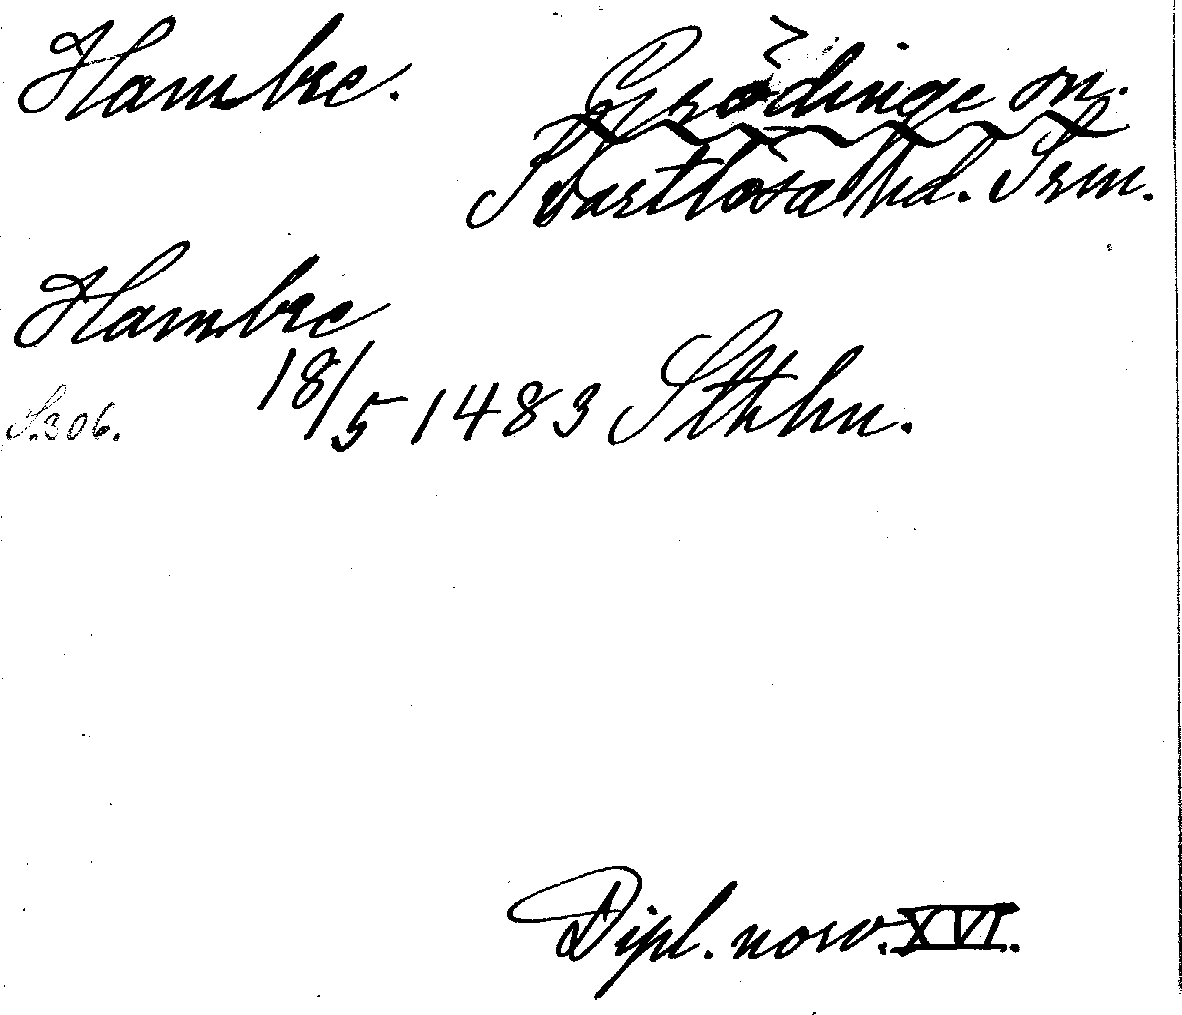 Hambre. Grödinge sn.
Svartlösa hd. Srm.
Hambre
18/5 1483 Sthlm.
S.306.
Dipl. norv. XVI.